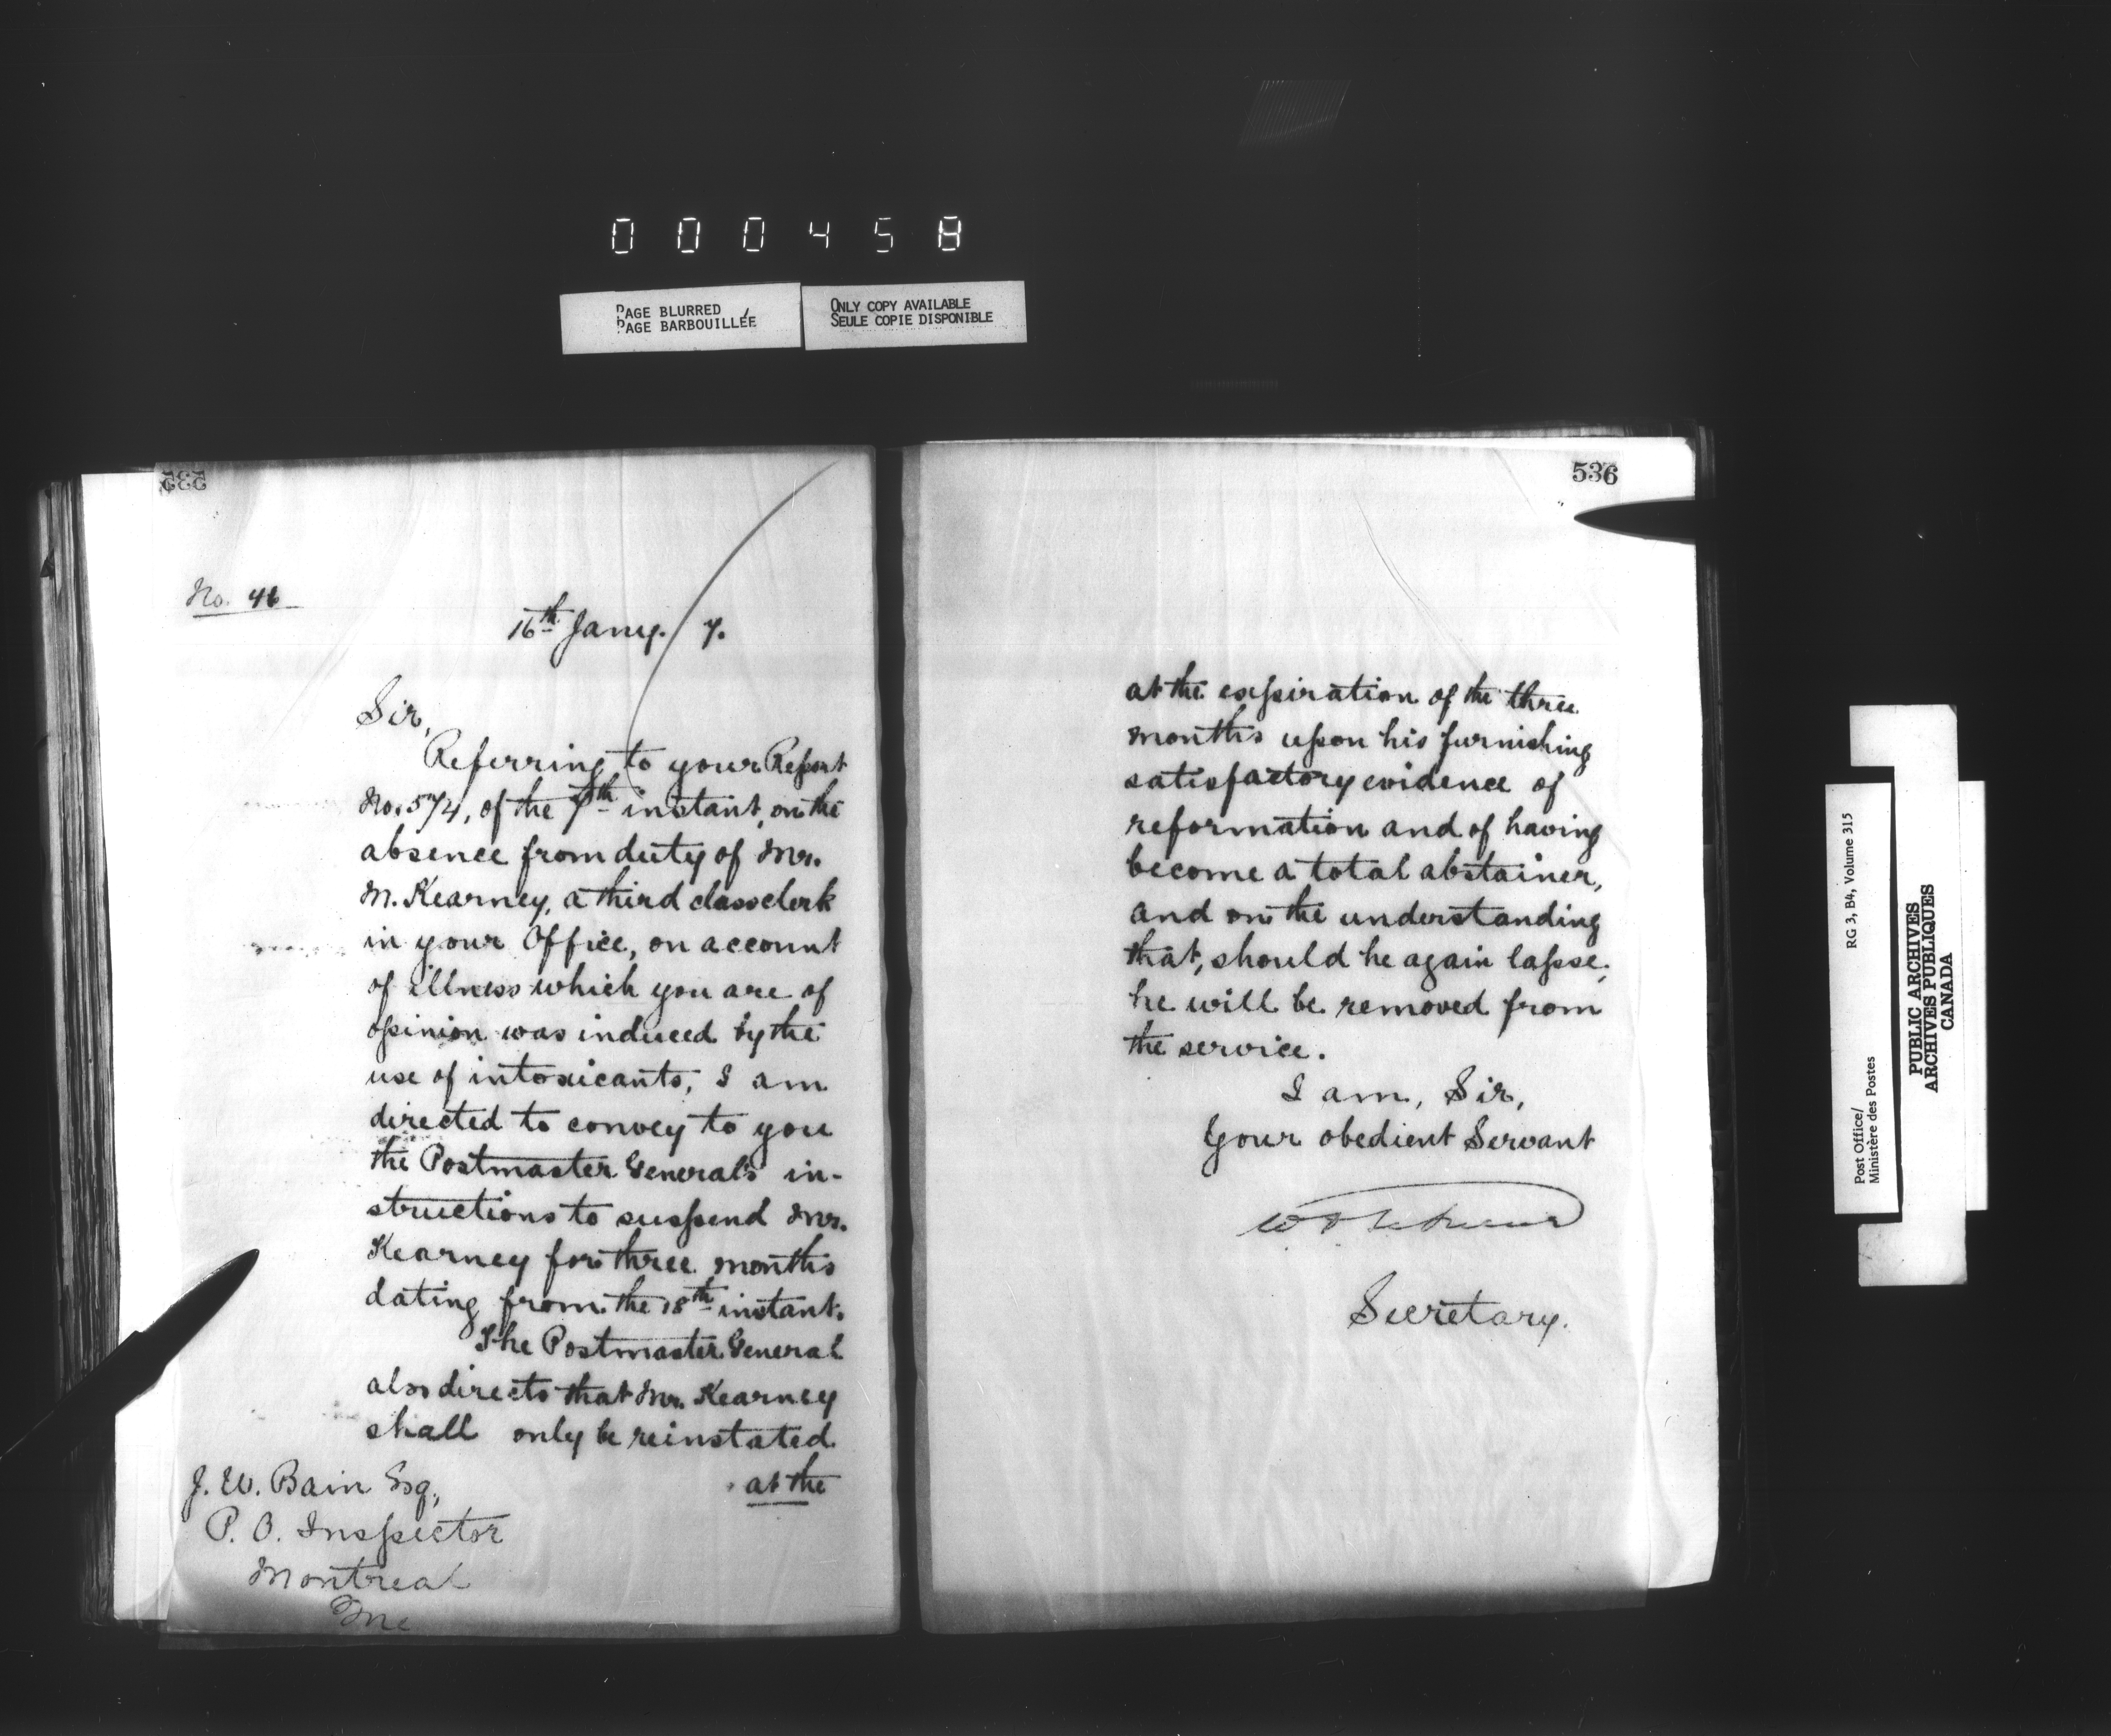 000458
PAGE BLURRED
PAGE BARBOUILLÉE
ONLY COPY AVAILABLE
SEULE COPIE DISPONIBLE
535
No. 46
16th Jany. / 7.
Sir,
Referring to your Report
No. 574, of the 7th instant, on the
absence from duty of Mr.
M. Kearney, a third class clerk
in your Office, on account
of illness which you are of
opinion was induced by the
use of intoxicants, I am
directed to convey to you
the Postmaster General's in-
structions to suspend Mr.
Kearney for three months
dating from the 18th instant.
The Postmaster General
also directs that Mr. Kearney
shall only be reinstated
at the
J. W. Bain Esq,
P. O. Inspector
Montreal
536
at the expiration of the three
months upon his furnishing
satisfactory evidence of
reformation and of having
become a total abstainer,
and on the understanding
that, should he again lapse,
he will be removed from
the service.
I am, Sir,
Your obedient Servant
Secretary.
Post Office/
Ministère des Postes
RG 3, B4, Volume 315
PUBLIC ARCHIVES
ARCHIVES PUBLIQUES
CANADA